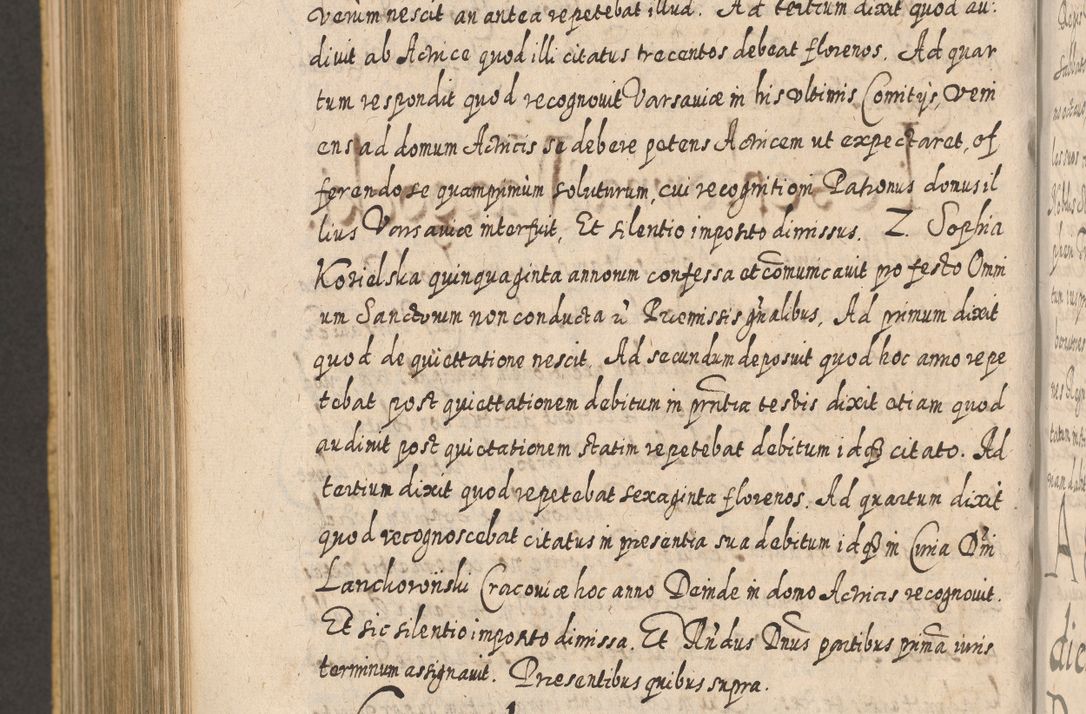 Verùm nescit an antea repetebat illud. Ad tertium dixit quod au:
diuit ab Actrice quod illi citatus trecentos debeat florenos. Ad quar
tum respondit quod recognouit Varsauiæ in his vltimis Comitijs, veni
ens ad domum Actricis se debere petens Actricem ut expectaret, of
ferendo se quamprimùm soluturum, cui recognitioni Patronus donus il
lius Varsauiæ interfuit, Et silentio imposito dimissus. 2. Sophia
Kozielska quinquaginta annorum confessa et com̃unicauit pro festo Omni
um Sanctorum non conducta ñ Præmissis gñalibus, Ad primum dixit
quod de quiettatione nescit, Ad secundum deposuit quod hoc anno repe
tebat post quiettationem debitum in pñtia testis dixit etiam quod
audiuit post quictationem statim repetebat debitum idq; citato. Ad
tertium dixit quod repetebat sexaginta florenos. Ad quartum dixit
quod recognoscebat citatus in presentia sua debitum idq; in Curia Dñi
Lanchoroński Cracouiæ hoc anno Deinde in domo Actricis recognouit.
Et sic silentio imposito dimissa. Et Rñdus Dnus partibus primã iuris
terminum assignauit. Præsentibus quibus supra.